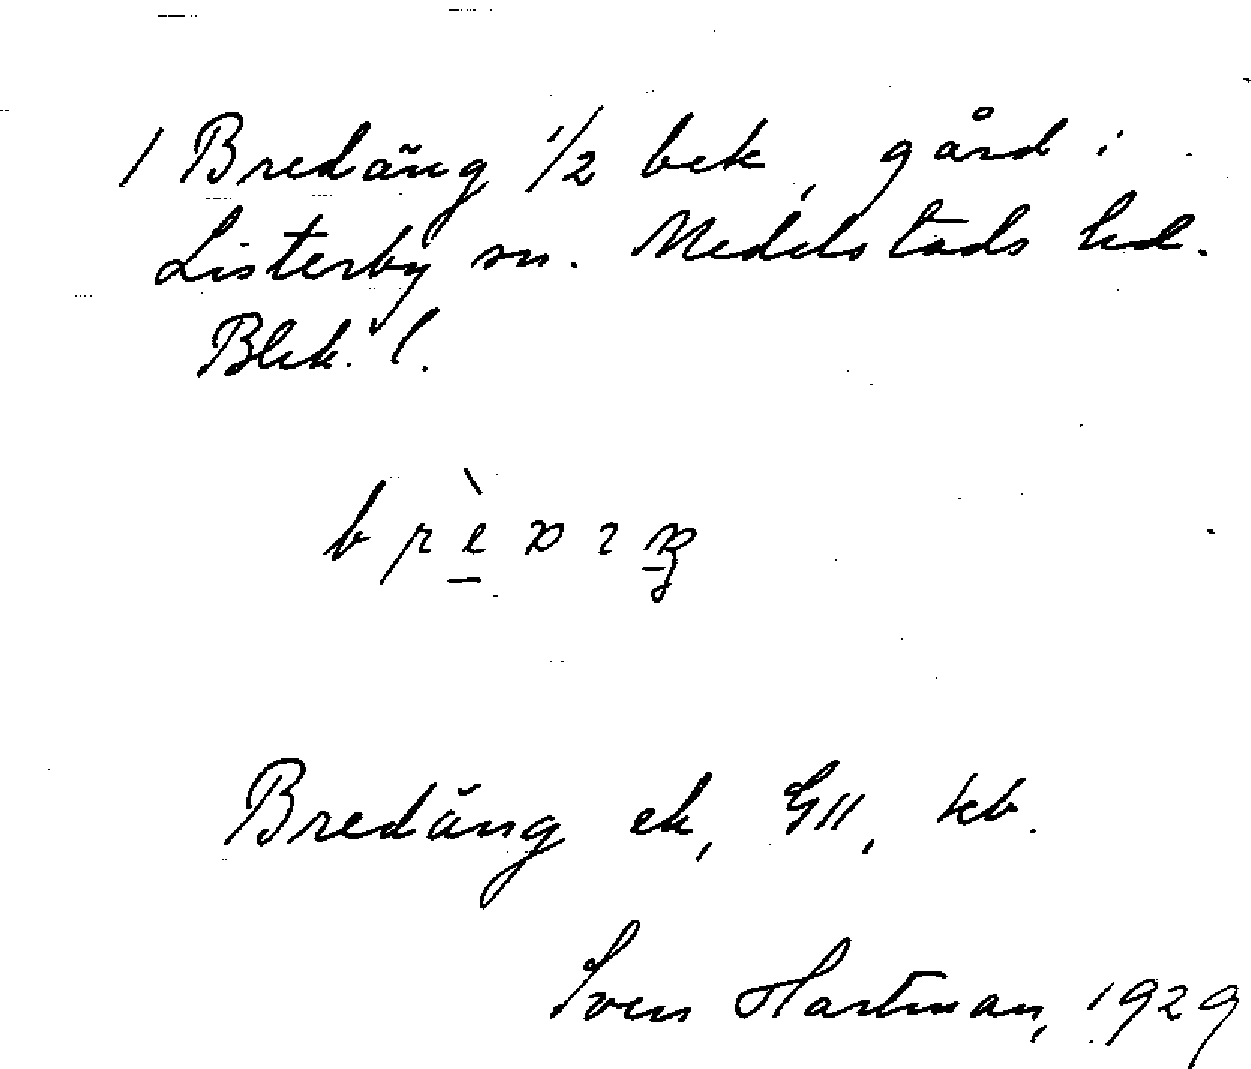 1 Bredäng 1/2 bek, gård i
Listerby sn. Medelstads hd.
Blek. l.
Bredäng ek, GII, kb.
Sven Hartman, 1929